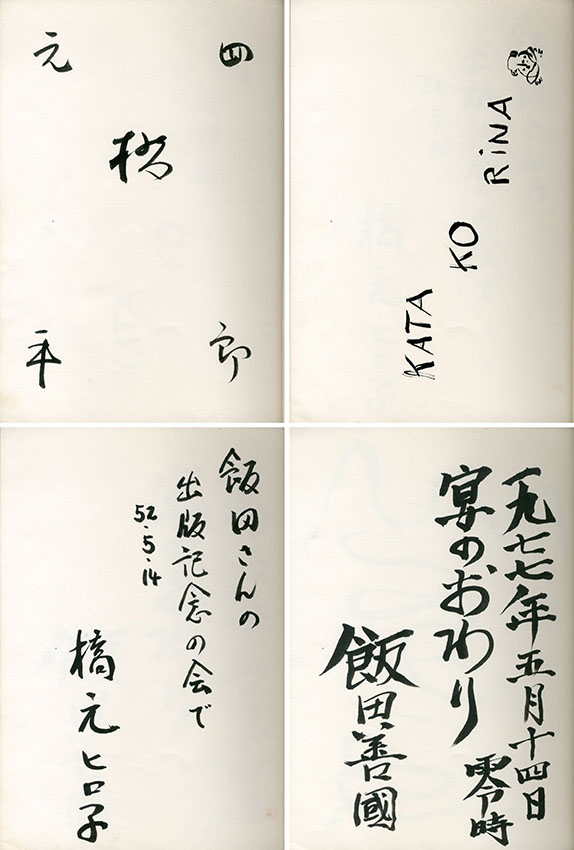 元 四
橋
平 郎
KATA
KO
RiNA
飯田さんの
出版記念の会で
52・5・14
橋元ヒロ子
一九七七年五月十四日
零時
宴のおわり
飯田善國